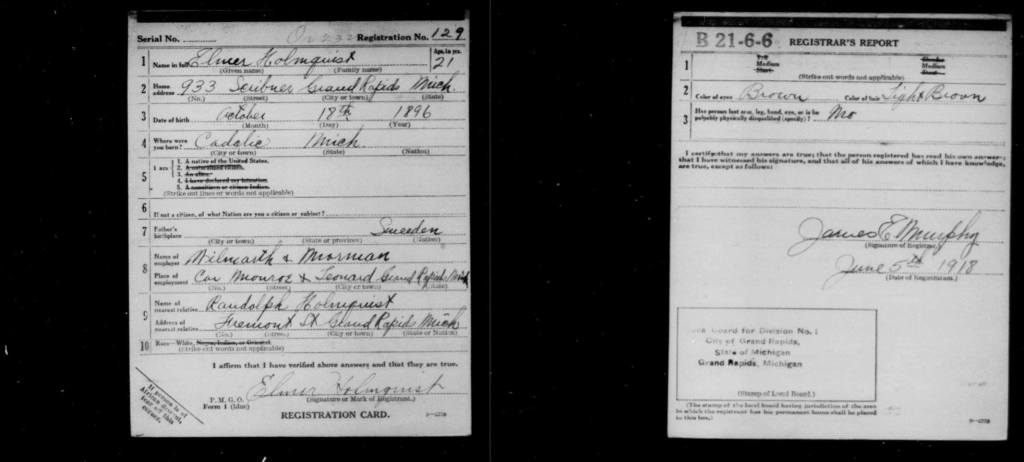 Serial No. Registration No. 129
1 Name in full Elmer Holmquist Age, in yrs. 21
(Given name) (Family name)
2 Home address 933 Scribner Grand Rapids Mich.
(No.) (Street) (City or town) (State)
3 Date of birth October 18th 1896
(Month) (Day) (Year)
4 Where were you born? Cadalic Mich.
(City or town) (State) (Nation)
5 I am 1. A native of the United States.
2. A naturalized citizen.
3. An alien.
4. I have declared my intention.
5. A noncitizen or citizen Indian.
(Strike out lines or words not applicable)
6 If not a citizen, of what Nation are you a citizen or subject?
7 Father's birthplace Sweeden
(City or town) (State or province) (Nation)
8 Name of employer Wilmarth & Morman
Place of employment Cor Monroe & Leonard Grand Rapids Mich
(No.) (Street) (City or town) (State)
9 Name of nearest relative Randolph Holmquist
Address of nearest relative Fremont St Grand Rapids Mich
(No.) (Street) (City or town) (State or Nation)
10 Race—White, Negro, Indian, or Oriental.
(Strike out words not applicable)
I affirm that I have verified above answers and that they are true.
Elmer Holmquist
P. M. G. O. (Signature or Mark of Registrant.)
Form 1 (blue)
REGISTRATION CARD.
If person is of African descent, tear off this corner.
B 21-6-6 REGISTRAR'S REPORT
1 Tall Slender
Medium Medium
Short Stout
(Strike out words not applicable)
2 Color of eyes Brown Color of hair Light Brown
3 Has person lost arm, leg, hand, eye, or is he palpably physically disqualified (specify)? No
I certify that my answers are true; that the person registered has read his own answers;
that I have witnessed his signature, and that all of his answers of which I have knowledge,
are true, except as follows:
James E Murphy
(Signature of Registrar)
June 5th 1918
(Date of Registration.)
Board for Division No. 1
City of Grand Rapids,
State of Michigan
Grand Rapids, Michigan
(Stamp of Local Board.)
(The stamp of the local board having jurisdiction of the area
in which the registrant has his permanent home shall be placed
in this box.)